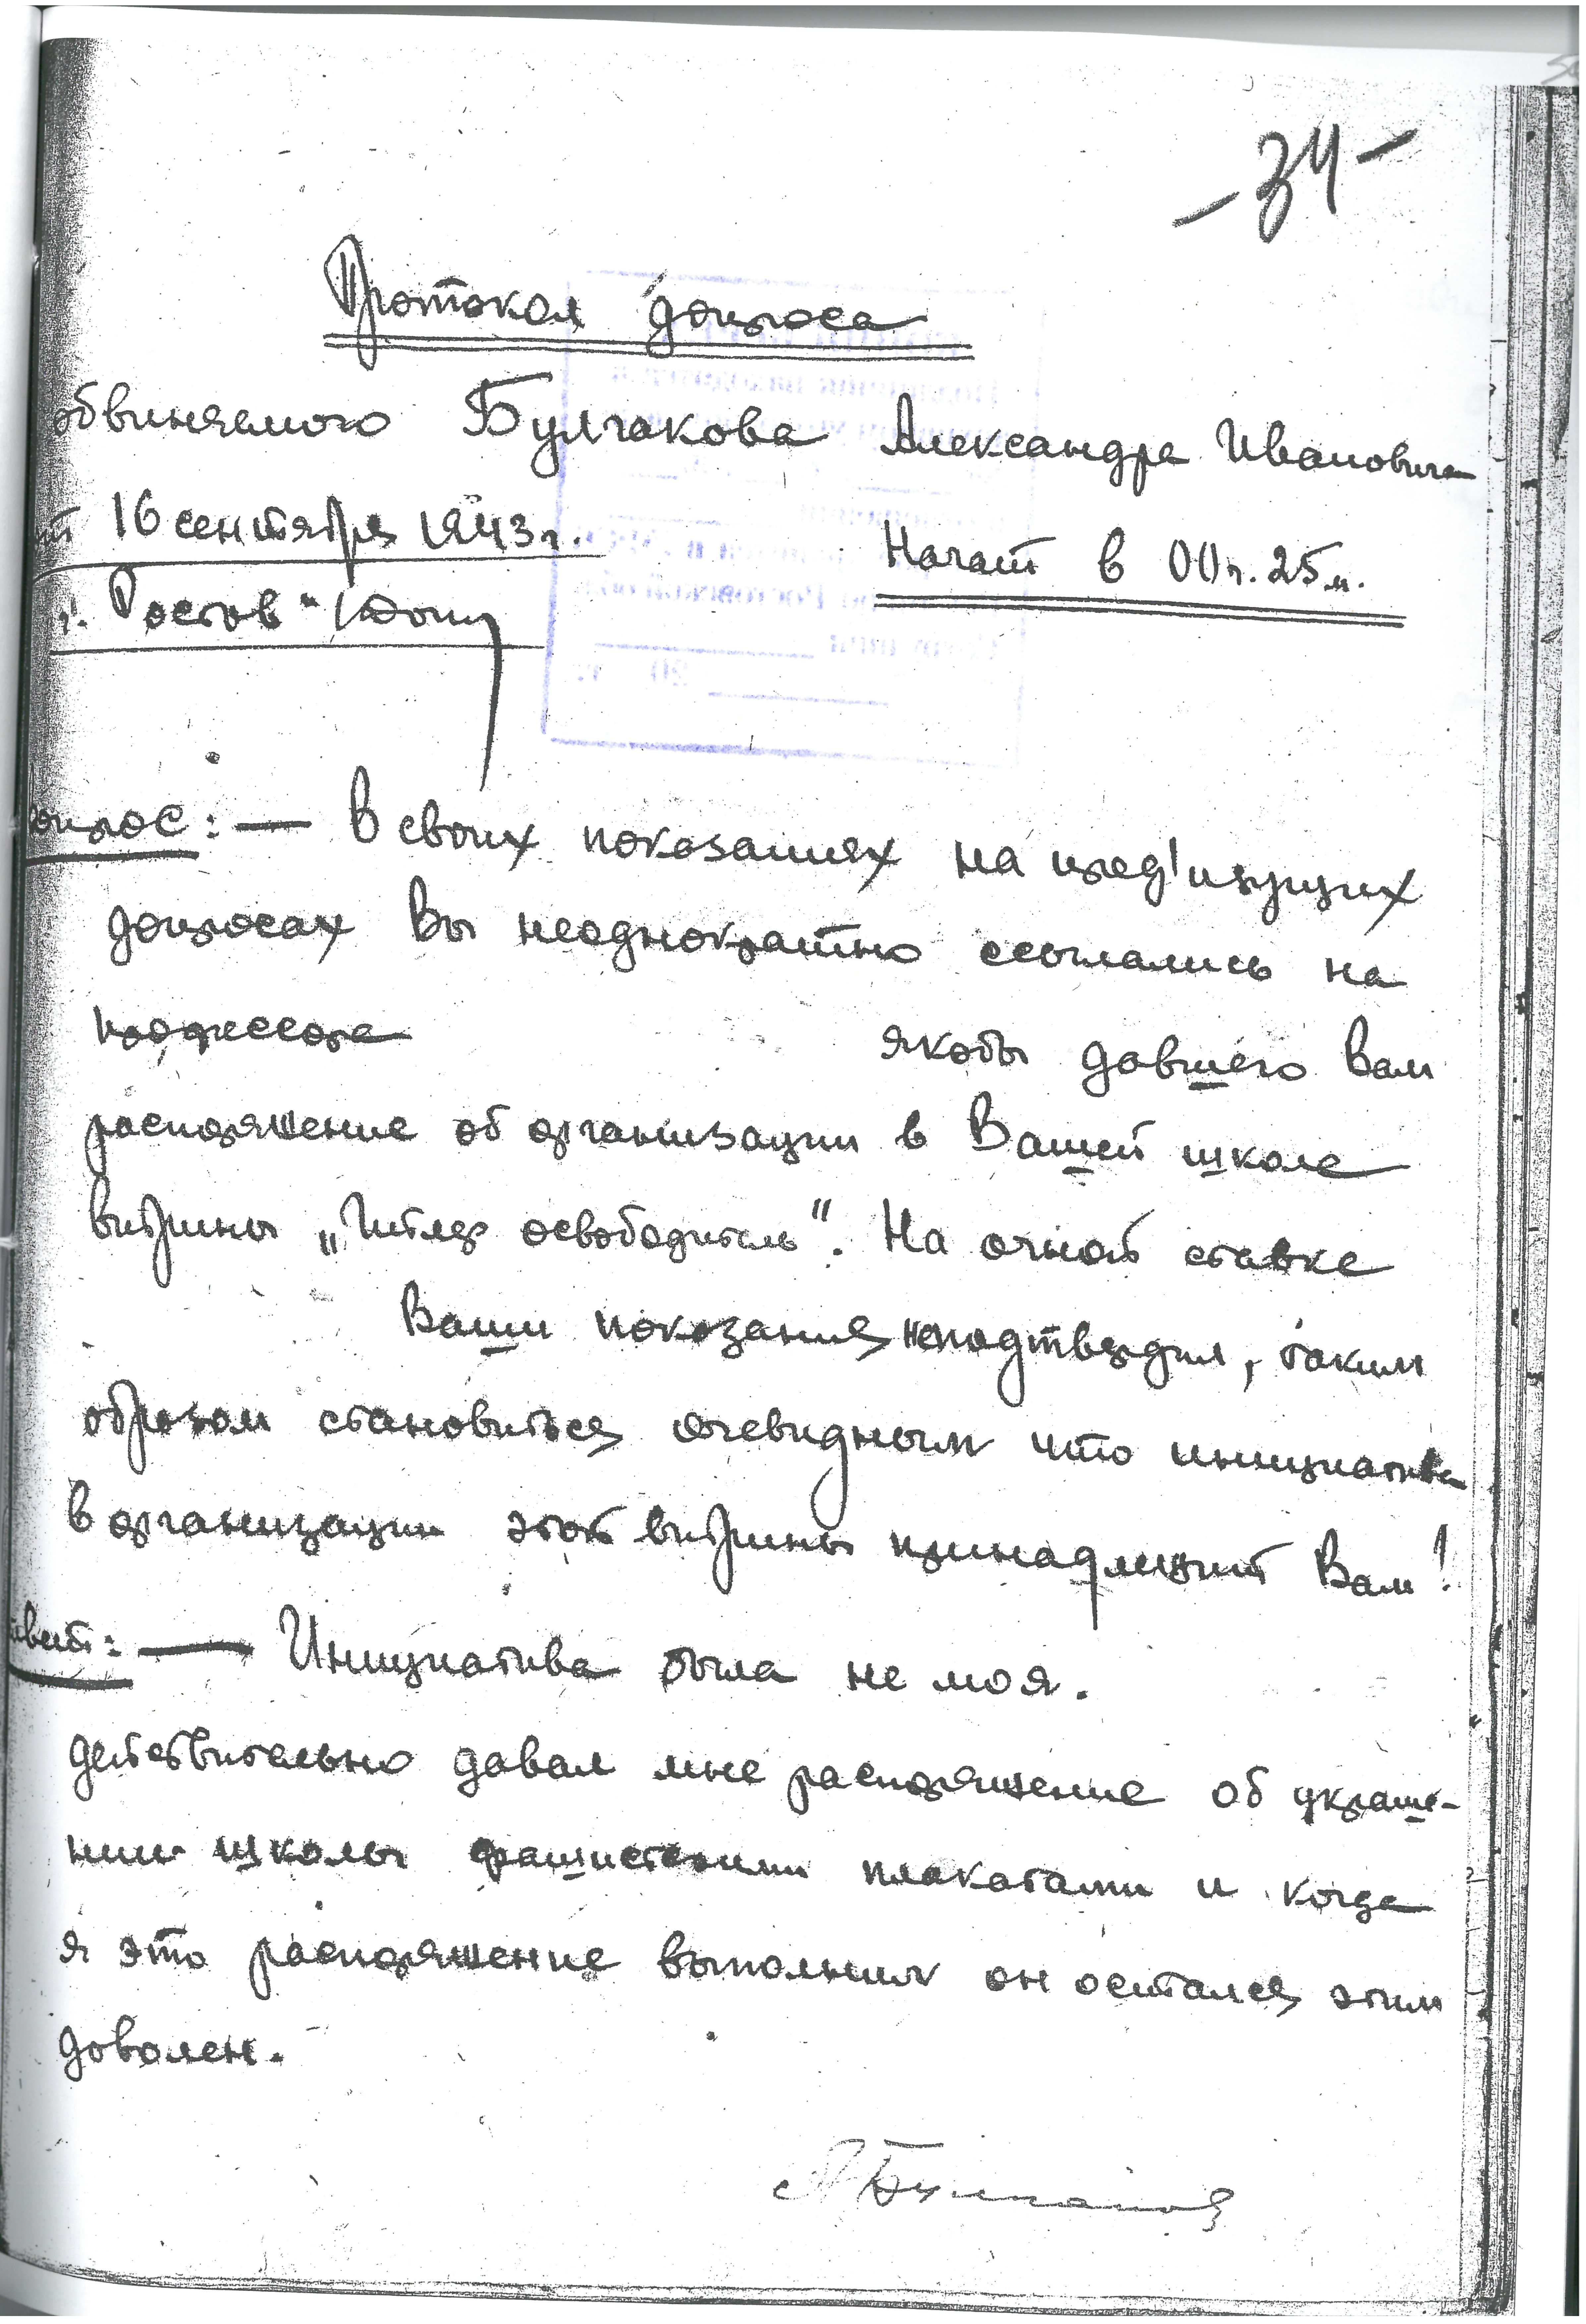 -34-
Протокол допроса
обвиняемого Булгакова Александра Ивановича
от 16 сентября 1943 г.
Начат в 00 ч. 25 м.
г. Ростов н/Дону
вопрос: — В своих показаниях на пред'идущих
допросах Вы неоднократно ссылались на
профессора якобы давшего Вам
распоряжение об организации в Вашей школе
витрины „Гитлер освободитель“. На очной ставке
Ваши показания неподтвердил, таким
образом становиться очевидным что инициатива
в организации этой витрины принадлежит Вам!
ответ: — Инициатива была не моя.
действительно давал мне распоряжение об украше-
нии школы фашистскими плакатами и когда
я это распоряжение выполнил он остался этим
доволен.
А Булгаков